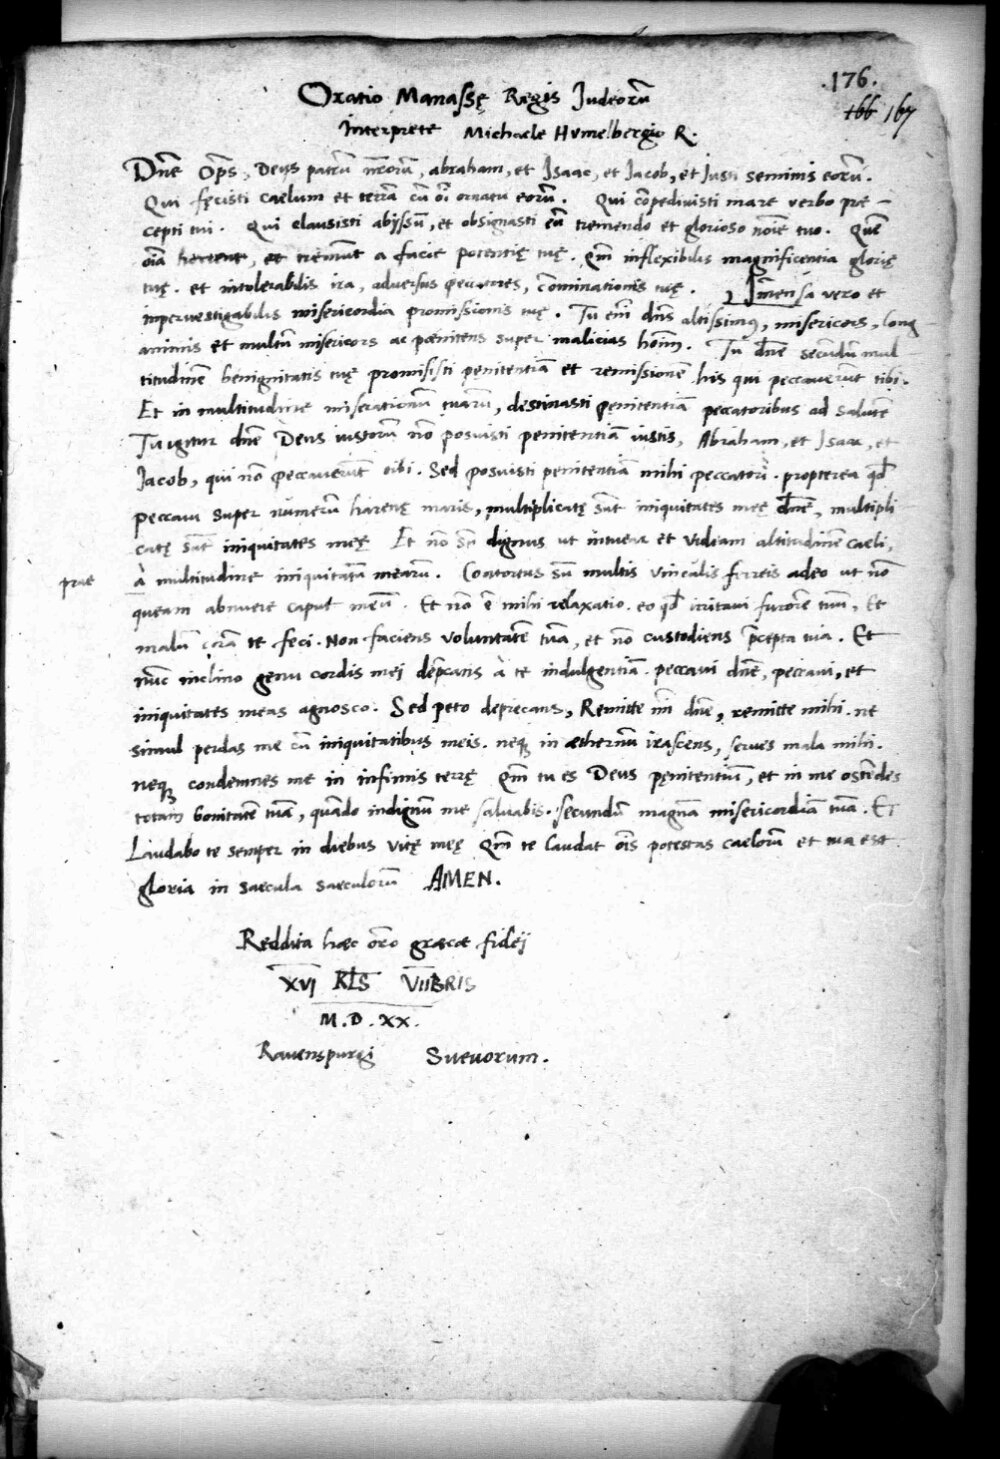 .176.
166 167
Oratio Manassę Regis Judeorū
Interprete Michaele Hvmelbergio R.
Dn̄e Op̄s, Deus patrū nr̄orū, abraham, et Isaac, et Jacob, et Justi seminis eorū.
Qui fęcisti caelum et terrā cū oī ornatu eorū. Qui cōpedivisti mare verbo prae-
cepti tui. Qui clausisti abyssū, et obsignasti eā tremendo et glorioso noīe tuo. Quē
oīa et tremūt a facie potentię tuę. Qm̄ inflexibilis magnificentia glorię
tuę. et intolerabilis ira, adversus peccatores, cōminationis tuę. Im̄ensa vero et
impervestigabilis misericordia promissionis tuę. Tu em̄ dn̄s altissimus, misericors, long
animis et multū misericors ac pœnitens super malicias hoīm. Tu dn̄e secundū mul-
titudinē benignitatis tuę promisisti pęnitentiā et remissionē his qui peccaverūt tibi.
Et in multitudine miserationū tuarū, destinasti pęnitentiā peccatoribus ad salutē
Tu igitur dn̄e Deus iustorū nō posuisti penitentiā iustis, Abraham, et Isaac, et
Jacob, qui nō peccaverūt tibi. Sed posuisti penitentiā mihi peccatori. propterea qd̄
peccavi super numerū harenę maris, multiplicatę sūt iniquitates meę dn̄e, multipli
catę sūt iniquitates meę Et nō sū dignus ut intuear et videam altitudinē caeli,
prae à multitudine iniquitatū mearū. Contortus sū multis vinculis ferreis adeo ut nō
queam abnuere caput meū. Et nō ē mihi relaxatio. eo qd̄ irritavi furorē tuū, Et
malū corā te feci. Non faciens voluntatē tuā, et nō custodiens p̄cepta tua. Et
nūc inclino genu cordis mei dep̄cans à te indulgentiā. peccavi dn̄e, peccavi, et
iniquitates meas agnosco. Sed peto deprecans, Remitte m̄i dn̄e, remitte mihi. ne
simul perdas me cū iniquitatibus meis. neq. in æthernū irascens, serves mala mihi.
neq. condemnes me in infimis terrę Qm̄ tu es Deus pęnitentiū, et in me ostēdes
totam bonitatē tuā, quando indignū me salvabis. secundū magnā misericordiā tuā. Et
Laudabo te semper in diebus vitę męę Qm̄ te laudat oīs potestas caelorū et tua est
gloria in sæcula sæculorū AMEN.
Reddita hæc or̄o græcæ fideij
XVI KLS VIIBRIS
M.D.XX.
Ravenspurgi Suevorum.